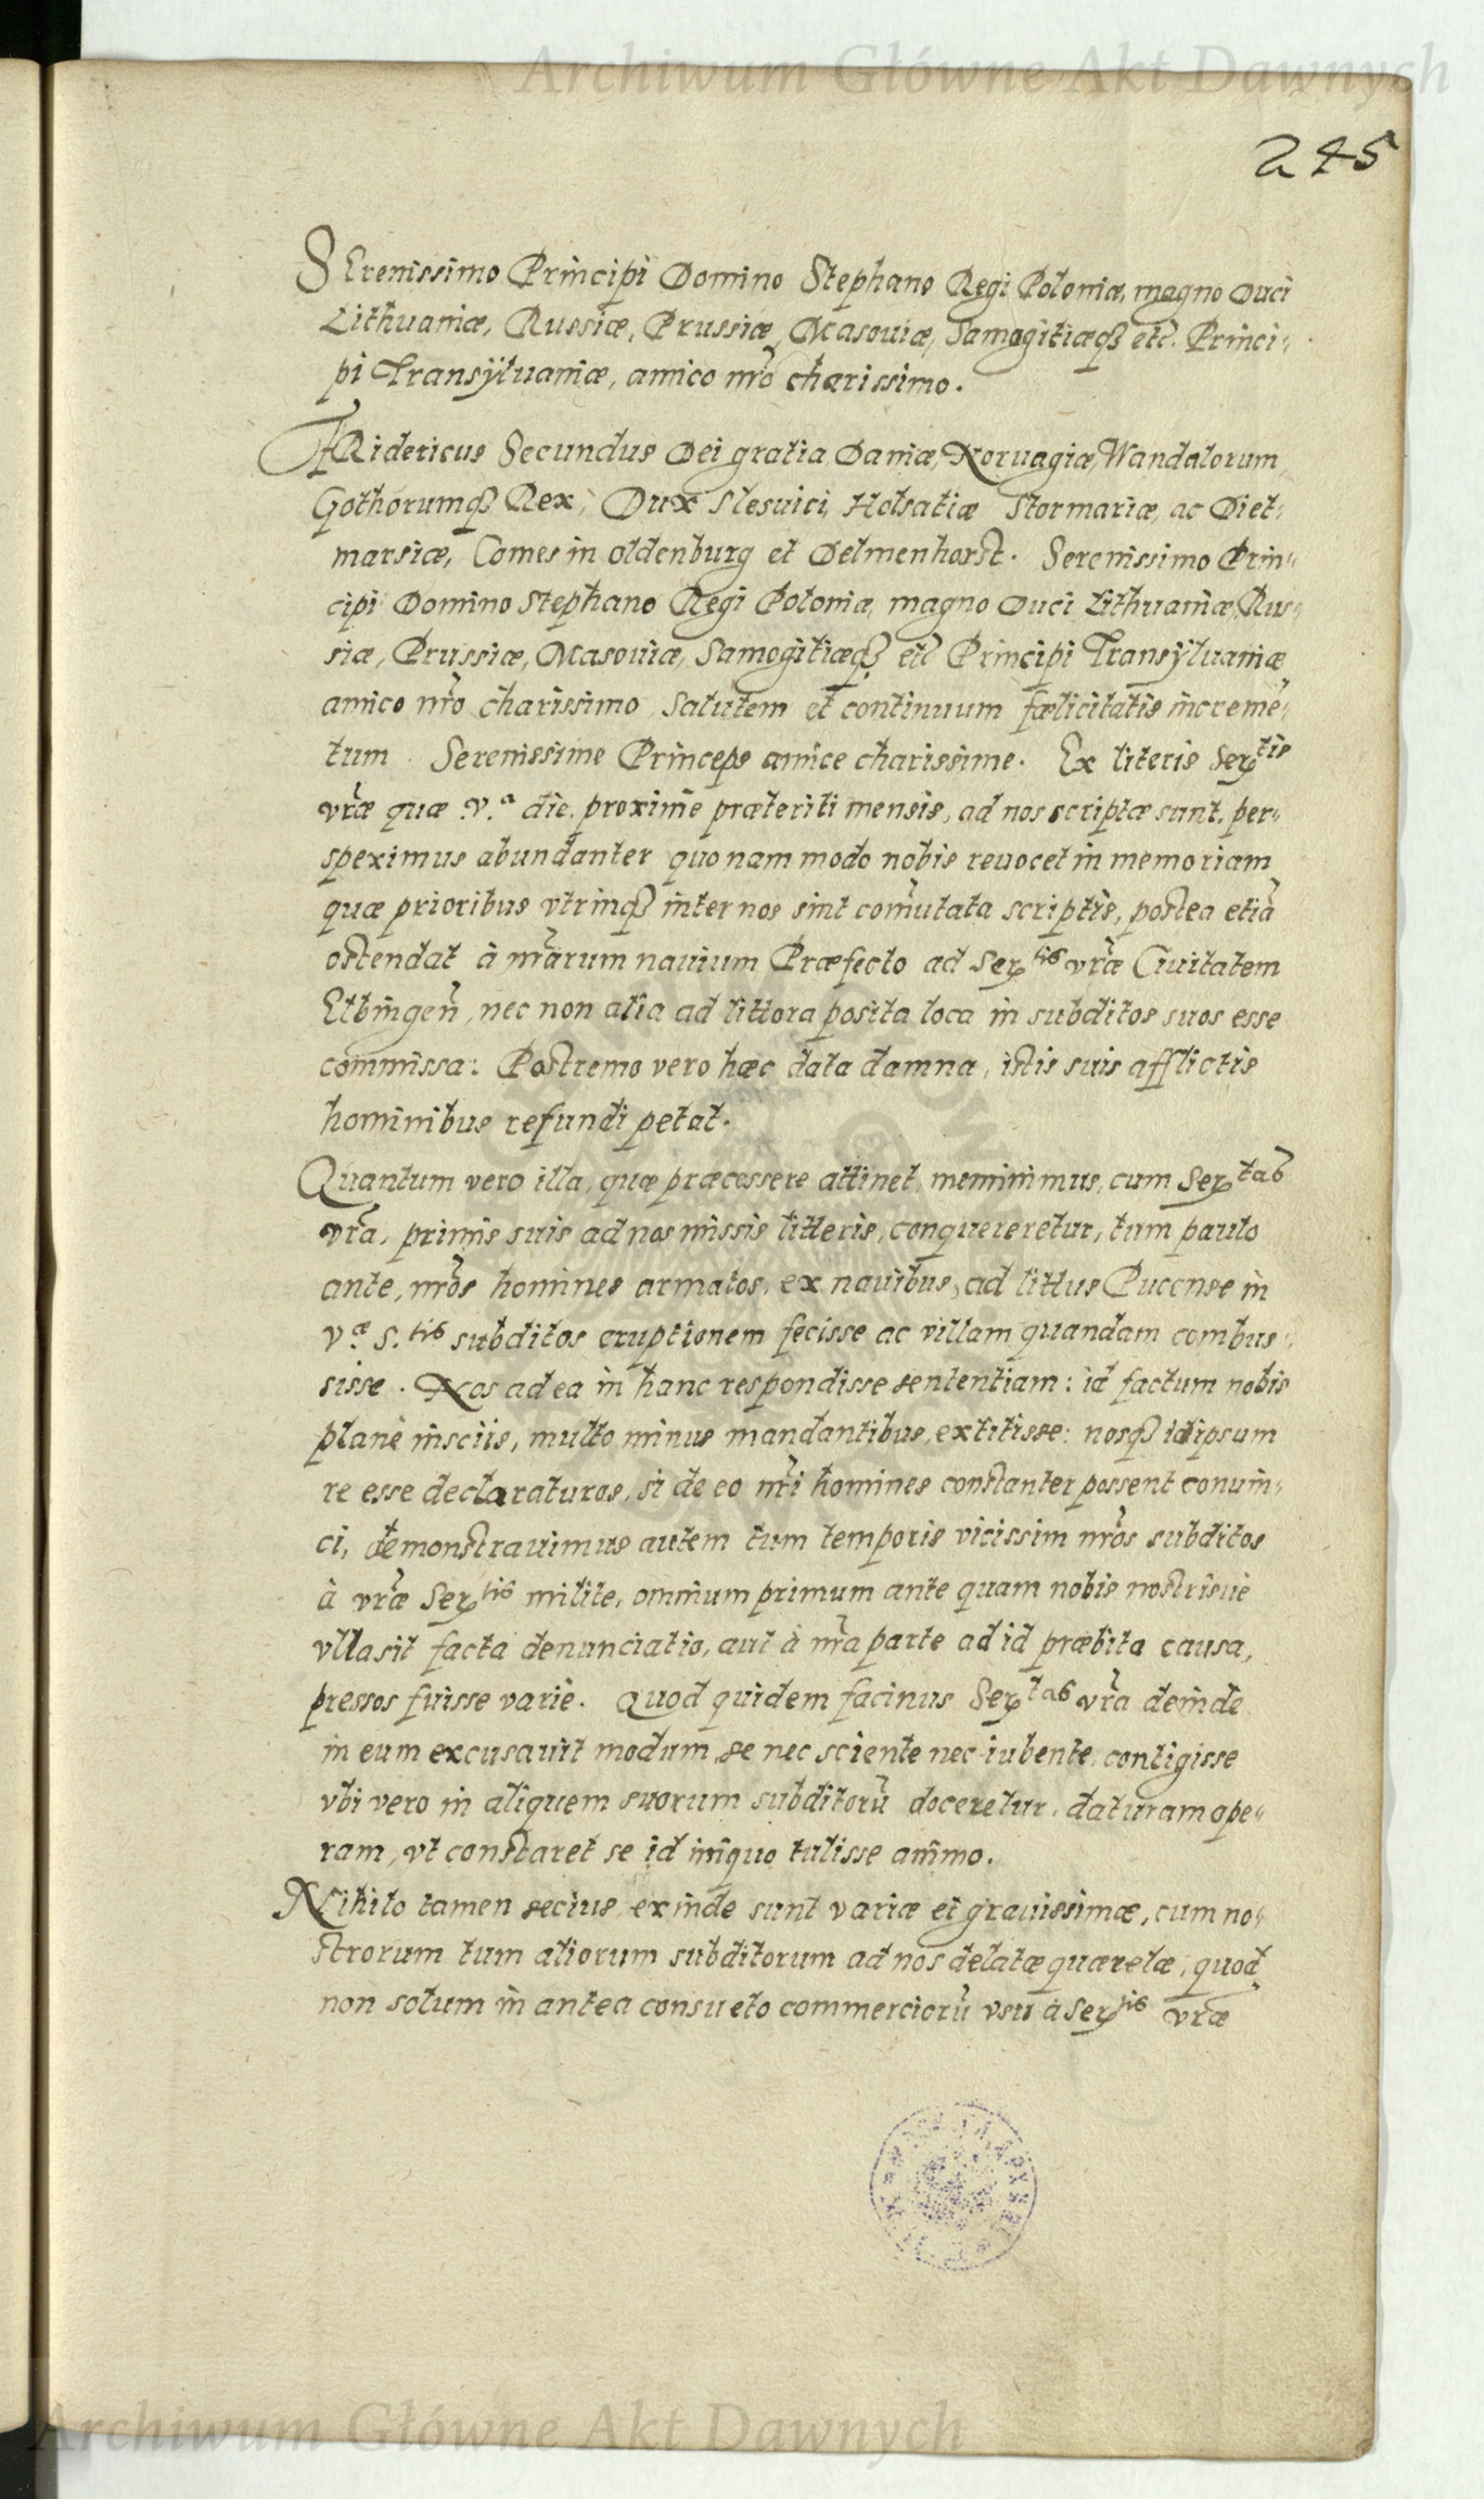 Archiwum Główne Akt Dawnych
245
SErenissimo Principi Domino Stephano Regi Poloniæ, magno Duci
Lithuaniæ, Russiæ, Prussiæ, Masouiæ, Samogitiæq3 etc. Princi„
pi Transÿluaniæ, amico nr̃o charissimo.
FRidericus Secundus Dei gratia Daniæ, Noruagiæ, Wandalorum
Gothorumq3 Rex, Dux Slesuici, Holsatiæ Stormariæ, ac Diet„
marsiæ, Comes in Oldenburg et Delmenhorst. Serenissimo Prin„
cipi Domino Stephano Regi Poloniæ, magno Duci Lithuaniæ, Rus„
siæ, Prussiæ, Masouiæ, Samogitiæq3 etc Principi Transÿluaniæ
amico nr̃o charissimo salutem et continuum fœlicitatis incremẽ„
tum. Serenissime Princeps amice charissime. Ex literis Serᵗⁱˢ
vr̃æ quæ V.ᵃ die proxime præteriti mensis, ad nos scriptæ sunt, per„
speximus abundanter quo nam modo nobis reuocet in memoriam
quæ prioribus vtrinq3 inter nos sint com̃utata scriptis, postea etiã
ostendat à nr̃arum nauium Præfecto ad Serᵗⁱˢ vr̃æ Ciuitatem
Elbingeñ, nec non alia ad littora posita loca in subditos suos esse
commissa: Postremo vero hæc data damna, istis suis afflictis
hominibus refundi petat.
Quantum vero illa, quæ præcessere attinet, meminimus, cum Serᵗᵃˢ
vr̃a, primis suis ad nos missis litteris, conquereretur, tum paulo
ante, nr̃os homines armatos, ex nauibus, ad littus Pucense in
V.æ S.ᵗⁱˢ subditos eruptionem fecisse ac villam quandam combus„
sisse. Nos ad ea in hanc respondisse sententiam: id factum nobis
planè insciis, multo minus mandantibus, extitisse: nosq3 id ipsum
re esse declaraturos, si de eo nr̃i homines constanter possent conuin„
ci, demonstrauimus autem tum temporis vicissim nr̃os subditos
à vr̃æ Serᵗⁱˢ milite, omnium primum ante quam nobis nostrisuè
vlla sit facta denunciatio, aut à nr̃a parte ad id præbita causa,
pressos fuisse varie. Quod quidem facinus Serᵗᵃˢ vr̃a deinde
in eum excusauit modum, se nec sciente nec iubente contigisse
vbi vero in aliquem suorum subditorũ doceretur, daturam ope„
ram, vt constaret se id iniquo tulisse animo.
Nihilo tamen secius, exinde sunt variæ et grauissimæ, cum no„
strorum tum aliorum subditorum ad nos delatæ quærelæ, quod
non solum in antea consueto commerciorũ vsu à Serᵗⁱˢ vr̃æ
Archiwum Główne Akt Dawnych